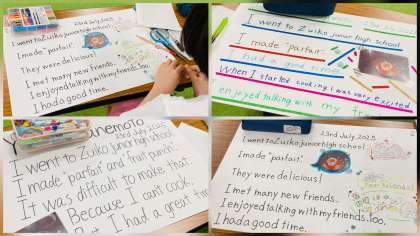 23rd July, 2025
I went to Zuiko junior high school
I made "parfait".
They were delicious!
I met many new friends.
I enjoyed talking with my friends, too.
I had a good time.
I went to Zuiko junior high school
I made "parfait".
I had a good time
When I started cooking I was very excited
enjoyed talking with my fr
23rd July, 2025
I went to Zuiko junior high school
I made "parfait" and that
It was difficult to make that.
Because I can't cook.
But I had a great
23rd July, 2025
I went to Zuiko junior high school
I made "parfait".
They were delicious!
I met many new friends.
I enjoyed talking with my friends, too.
I had a good time.